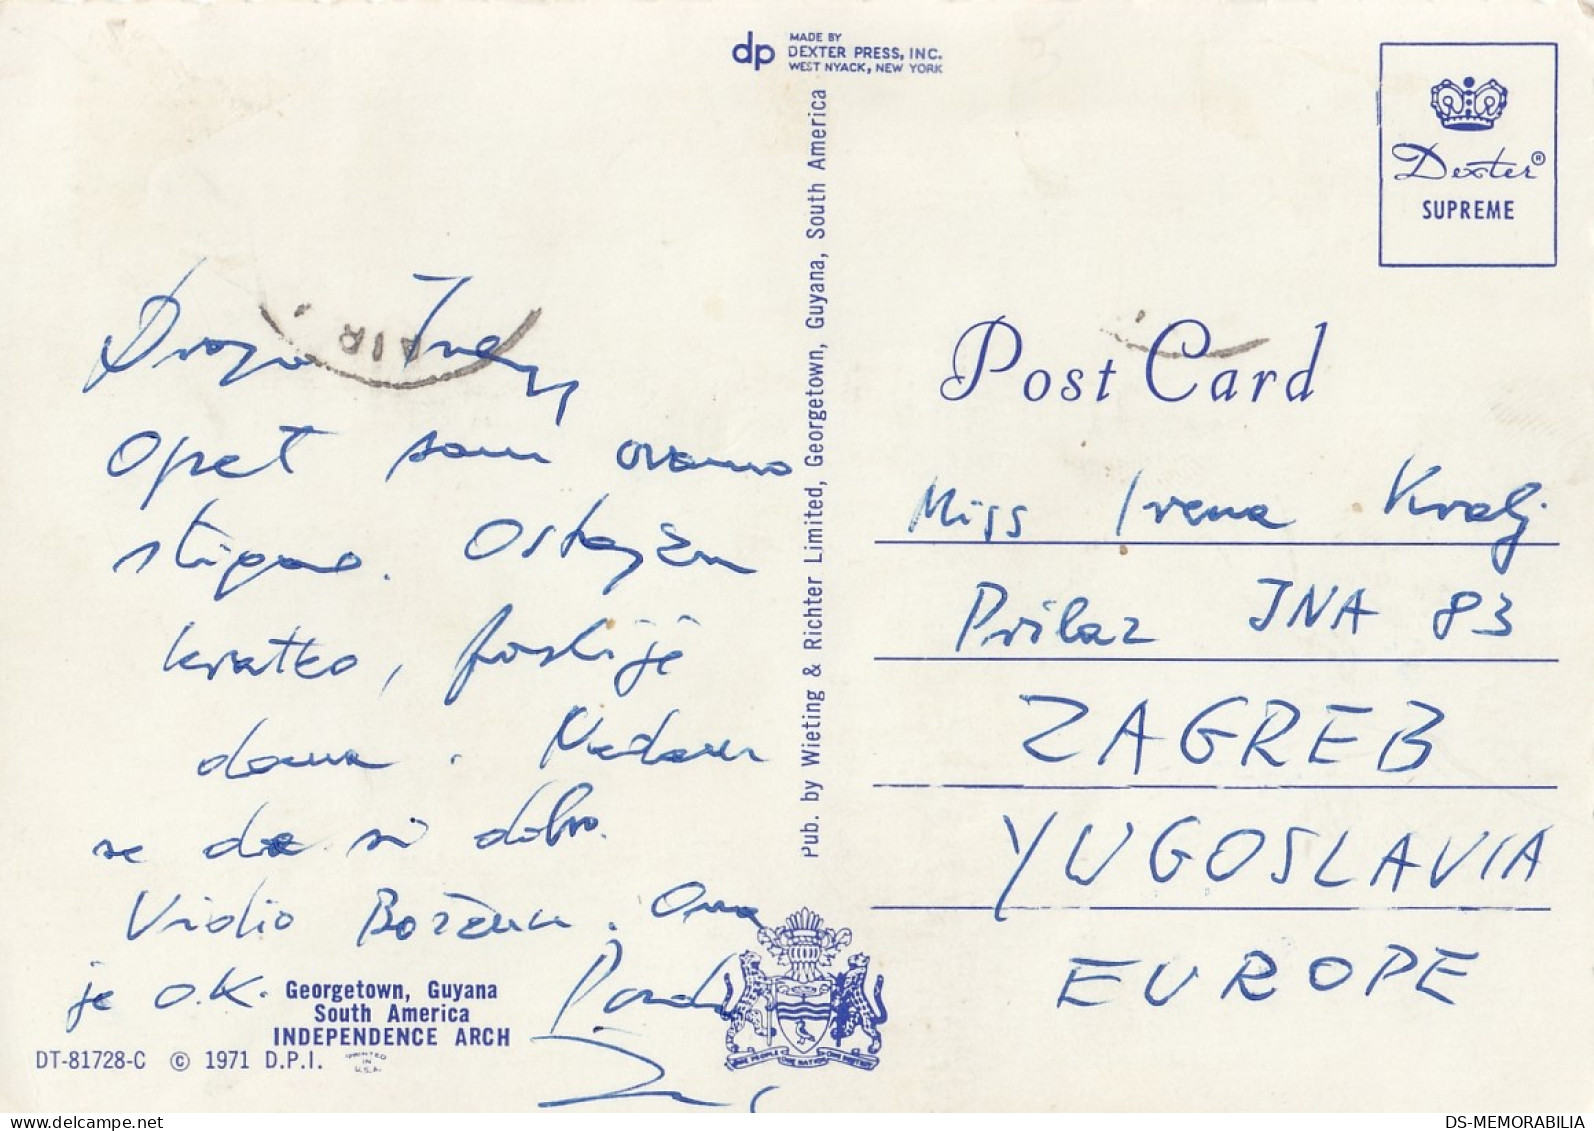 dp MADE BY
DEXTER PRESS, INC.
WEST NYACK, NEW YORK
Dexter®
SUPREME
Post Card
AIR
Pub. by Wieting & Richter Limited, Georgetown, Guyana, South America
Draga
Opet sam ovamo
stigao. Ostajem
kratko, poslije
doma. Nadam
se da si dobro.
Vidio Boženu. Ona
je O.K.
Miss Irena Kralj
Prilaz JNA 83
ZAGREB
YUGOSLAVIA
EUROPE
Georgetown, Guyana
South America
INDEPENDENCE ARCH
DT-81728-C © 1971 D.P.I.
PRINTED
IN
U.S.A.
ONE PEOPLE ONE NATION ONE DESTINY
DS-MEMORABILIA